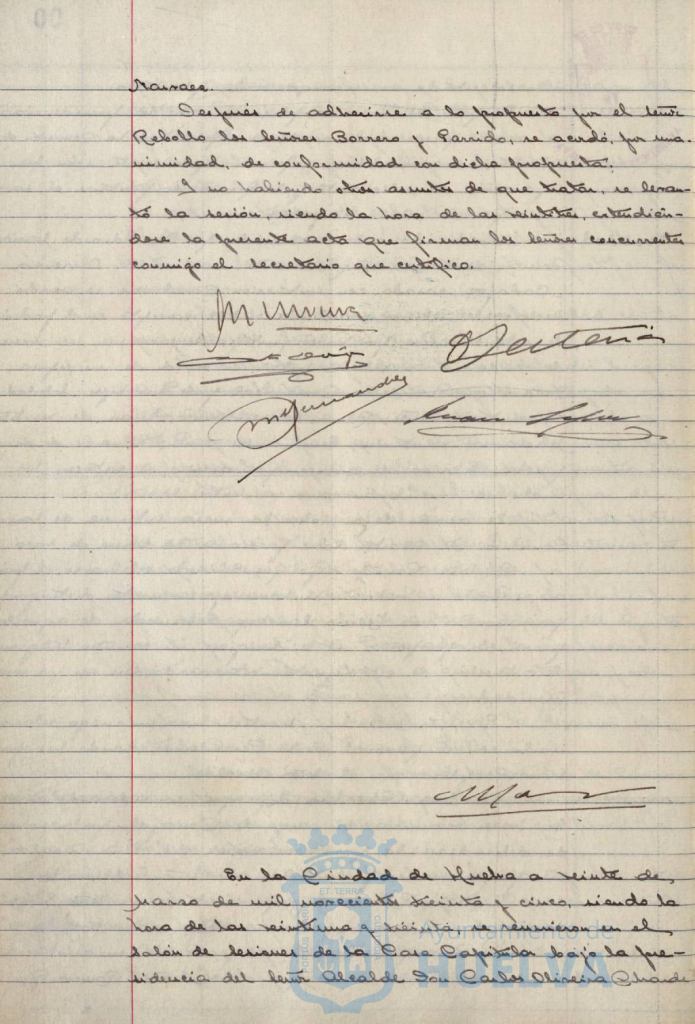 Narvaez.
Después de adherirse a lo propuesto por el señor
Rebollo los señores Borrero y Garrido, se acordó, por una-
nimidad, de conformidad con dicha propuesta.
Y no habiendo otros asuntos de que tratar, se levan-
tó la sesión, siendo la hora de las veintitres, extendién-
dose la presente acta que firman los señores concurrentes
conmigo el secretario que certifico.
En la Ciudad de Huelva a veinte de
Marzo de mil novecientos treinta y cinco, siendo la
hora de las veintiuna y treinta se reunieron en el
salón de sesiones de la Casa Capitular bajo la pre-
sidencia del señor Alcalde Don Carlos Oliveira Chardí
Ayuntamiento de
HUELVA